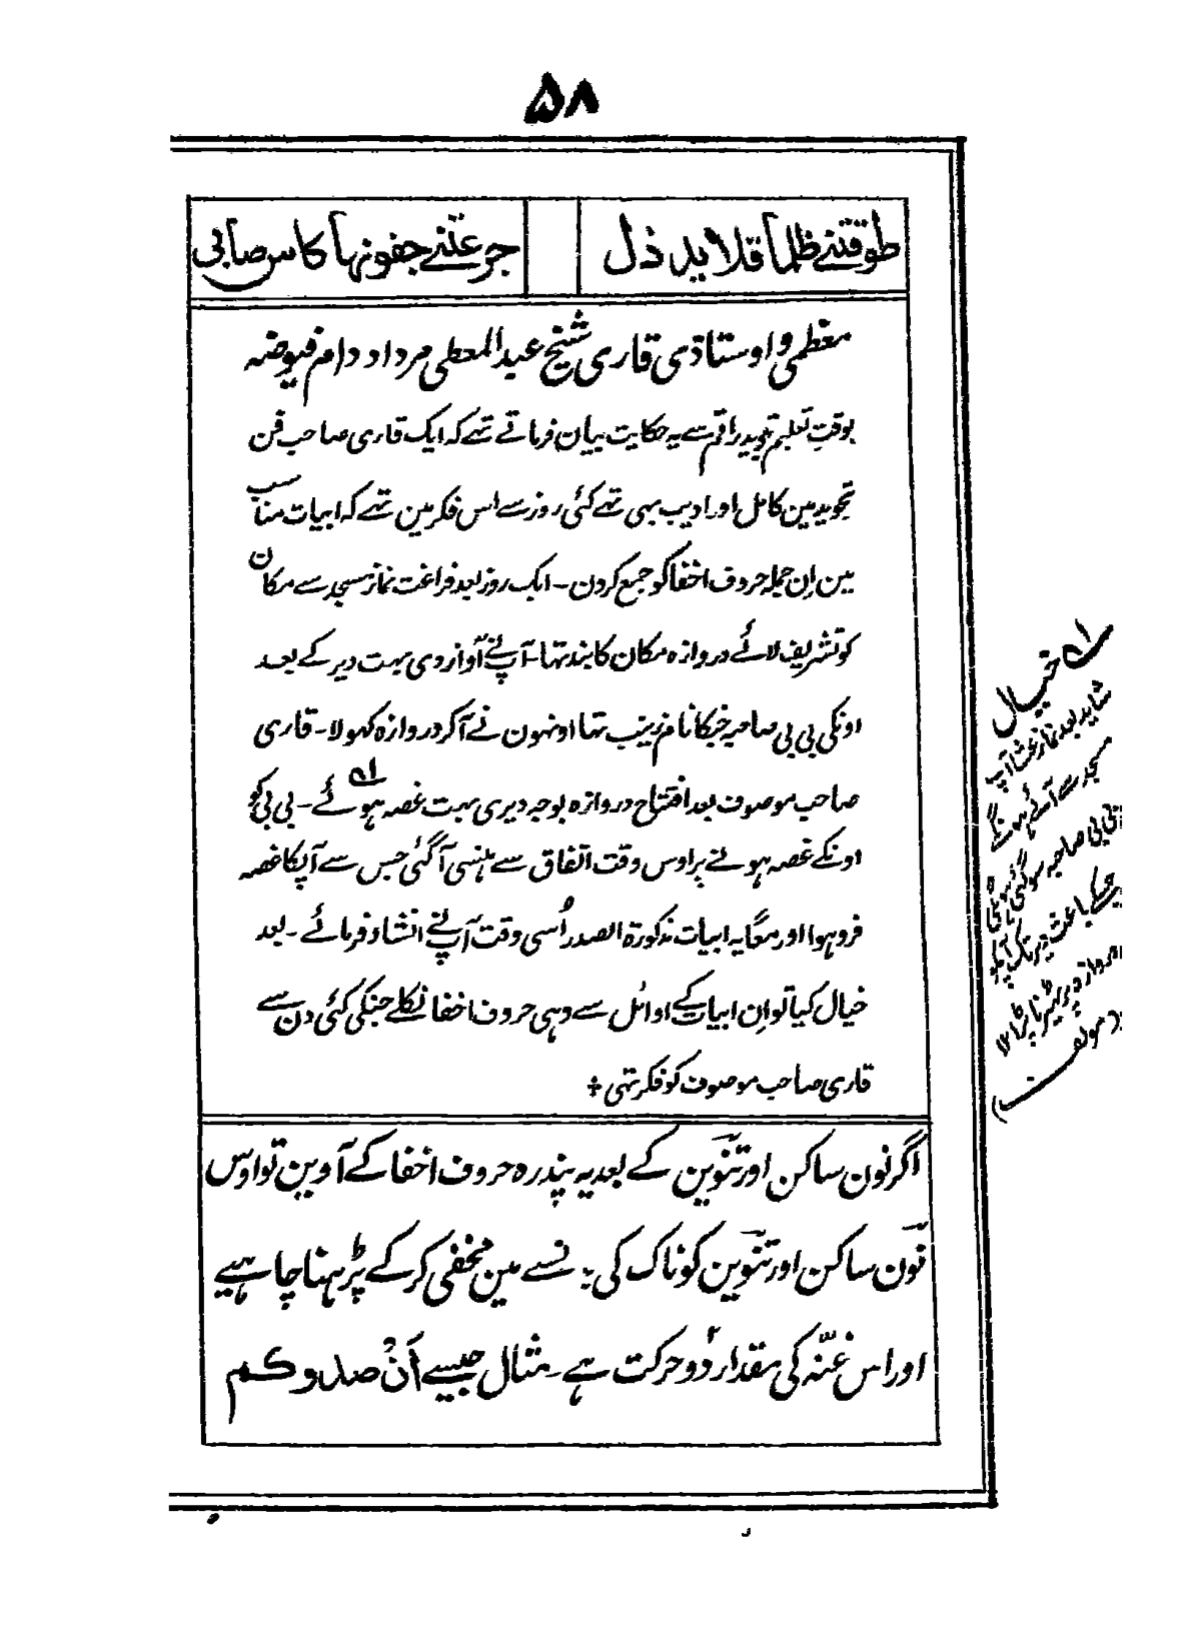 ۵۸
طوقتنے ظلماً قلاید ذل
جرعتنے جفونہا کاس صابی
معظمی و اوستاذی قاری شیخ عبد المعطی مرداد دام فیوضہ
بوقتِ تعلیم تجوید راقم سے یہ حکایت بیان فرماتے تہے کہ ایک قاری صاحب فن
تجوید مین کامل اور ادیب بہی تہے کئی روز سے اس فکر مین تہے کہ ابیات مناسب
مین اِن جملہ حروف اخفا کو جمع کردن ۔ ایک روز بعد فراغت نماز مسجد سے مکان
کو تشریف لائے دروازہ مکان کا بند تہا ۔ آپنے آواز دی بہت دیر کے بعد
اونکی بی بی صاحبہ جنکا نام زینب تہا اونہون نے آکر دروازہ کہولا ۔ قاری
صاحب موصوف بعد افتتاح دروازہ بوجہ دیری بہت غصہ ہوئے ۔ بی بی کو
اونکے غصہ ہونے پر اوس وقت اتفاق سے ہنسی آگئی جس سے آپکا غصہ
فرو ہوا اور معًا یہ ابیات مذکورۃ الصدر اُسی وقت آپنے انشاء فرمائے ۔ بعد
خیال کیا تو اِن ابیات کے اوائل سے وہی حروف اخفا نکلے جنکی کئی دن سے
قاری صاحب موصوف کو فکر تہی +
اگر نون ساکن اور تنوین کے بعد یہ پندرہ حروف اخفا کے آوین تو اوس
نون ساکن اور تنوین کو ناک کی بانسے مین مخفی کرکے پڑہنا چاہیے
اور اس غنّہ کی مقدار دو حرکت ہے ۔ مثال جیسے اَنْ صدوکم
لہ خیال
شاید بعد نماز عشا آپ
مسجد سے آئے ہونگے
بی بی صاحبہ سوگئی ہونگی
جسکے باعث دیر تک آپکو
دروازہ پر ٹہیرنا پڑا ۱۲
مولف